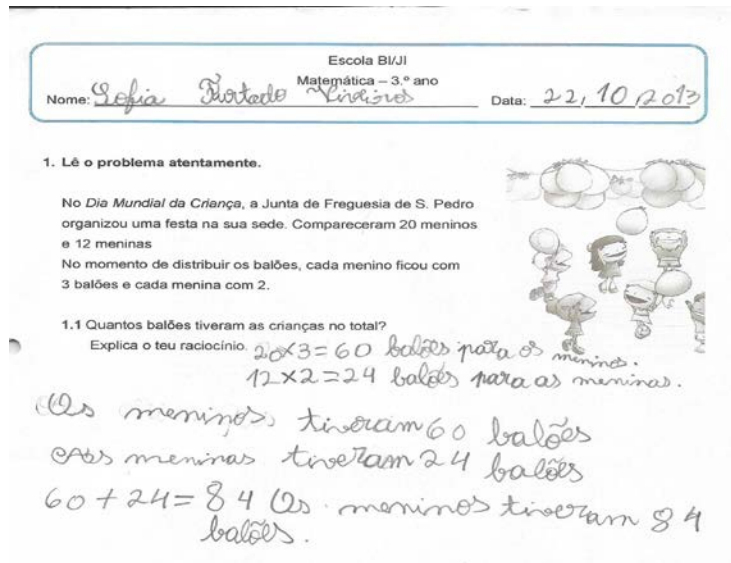 Escola BI/JI
Matemática – 3.º ano
Nome: Sofia Furtado
Data: 22, 10, 2013
1. Lê o problema atentamente.
No Dia Mundial da Criança, a Junta de Freguesia de S. Pedro
organizou uma festa na sua sede. Compareceram 20 meninos
e 12 meninas
No momento de distribuir os balões, cada menino ficou com
3 balões e cada menina com 2.
1.1 Quantos balões tiveram as crianças no total?
Explica o teu raciocínio. 20×3=60 balões para os meninos.
12×2=24 balões para as meninas.
Os meninos tiveram 60 balões
As meninas tiveram 24 balões
60+24=84 Os meninos tiveram 84
balões.